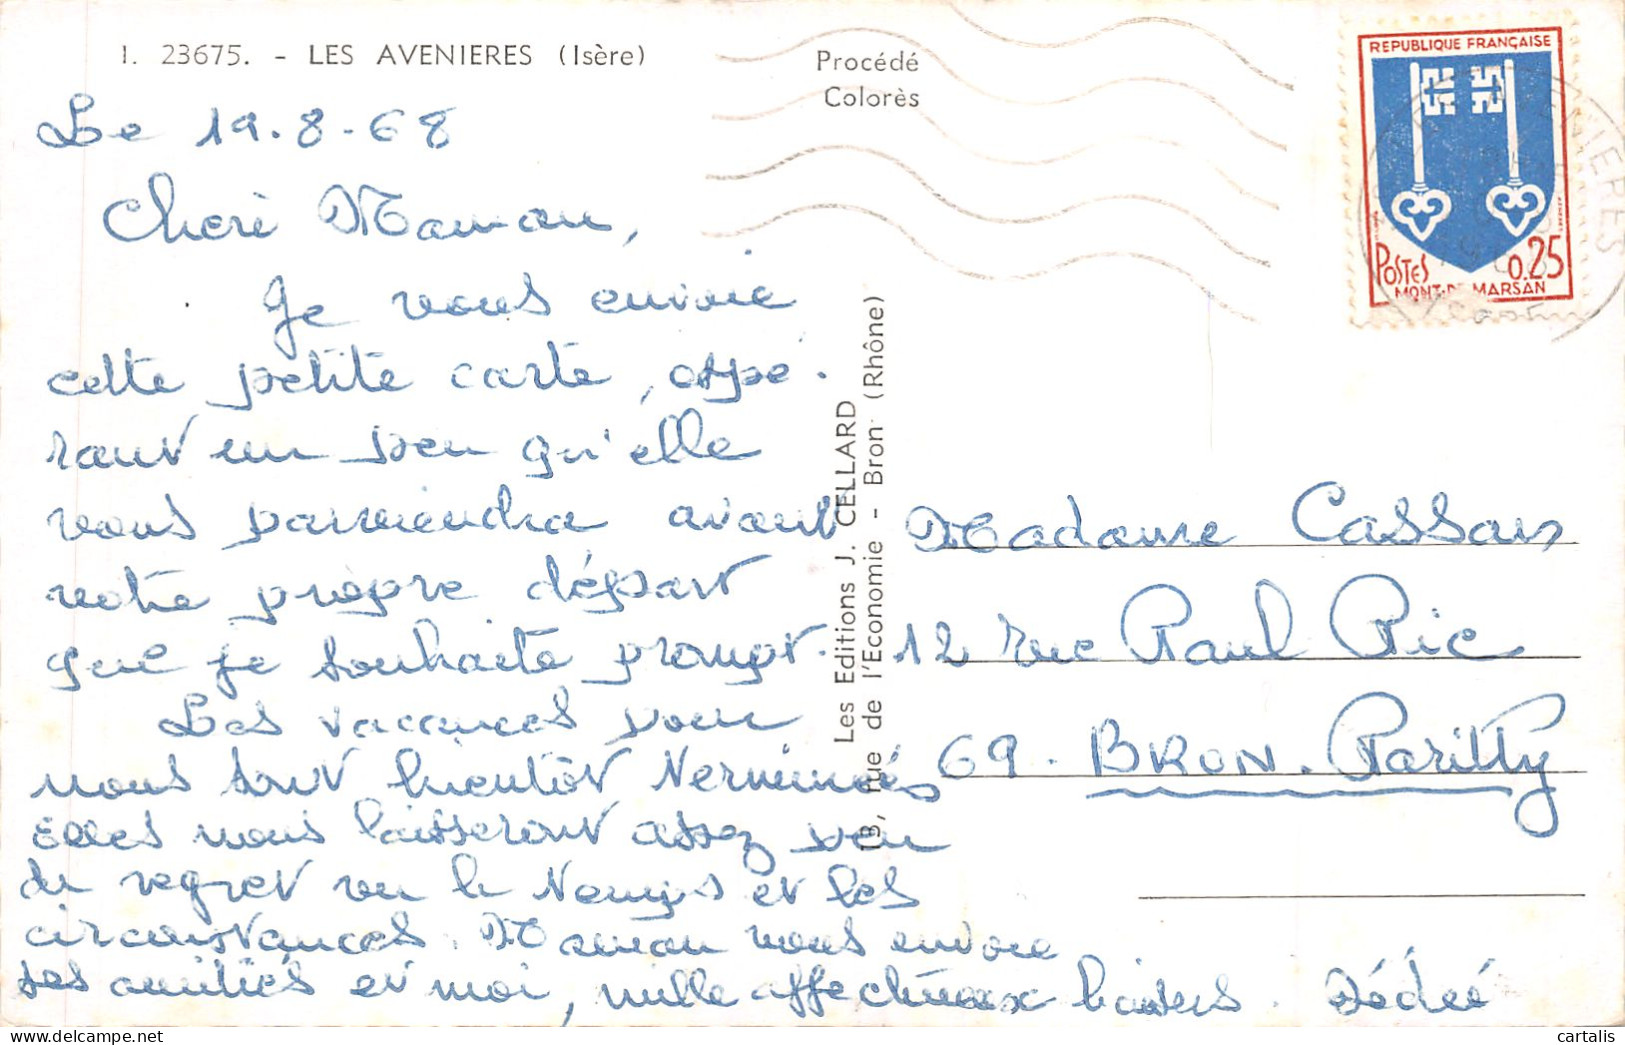 I. 23675. - LES AVENIERES (Isère)
Procédé
Colorès
REPUBLIQUE FRANÇAISE
POSTES 0.25
MONT-DE-MARSAN
Le 19.8-68
Cheri Maman,
Je vous envoie
cette petite carte, espé-
rant un peu qu'elle
vous parviendra avant
votre propre départ
que je souhaite prompt.
Les vacances pour
nous sont bientôt terminées
Elles nous laisseront assez peu
de regret vu le temps et les
circonstances. Maman vous envoie
ses amitiés et moi, mille affectueux baisers. Dédée
Les Editions J. CELLARD
, rue de l'Economie - Bron (Rhône)
Madame Cassan
12 rue Paul Pic
69. BRON. Parilly
cartalis